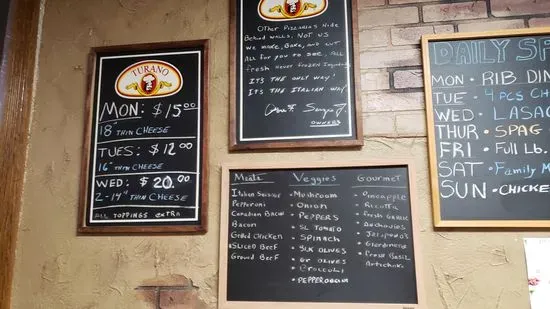 TURANO
MON: $15.00
18" THIN CHEESE
TUES: $12.00
16" THIN CHEESE
WED: $20.00
2-14" THIN CHEESE
ALL TOPPINGS EXTRA
Other Pizzarias Hide
Behind walls, Not US
We make, Bake, and cut
All for you to see. All
fresh Never frozen
Its the only way!
Its the Italian way!
OWNERS
Meats
Italian
Pepperoni
Canadian Bacon
Bacon
Grilled Chicken
Sliced Beef
Ground Beef
Veggies
Mushroom
Onion
Peppers
SL Tomato
Spinach
BLK Olives
Gr Olives
Broccoli
Gourmet
Pineapple
Ricotta
Fresh Garlic
Anchovies
Jalapeno's
Giardinera
Fresh Basil
Artichoke
DAILY
MON · RIB
TUE · 4 PCS
WED ·
THUR · SPAG
FRI · Full
SAT · Family
SUN · CHICKE